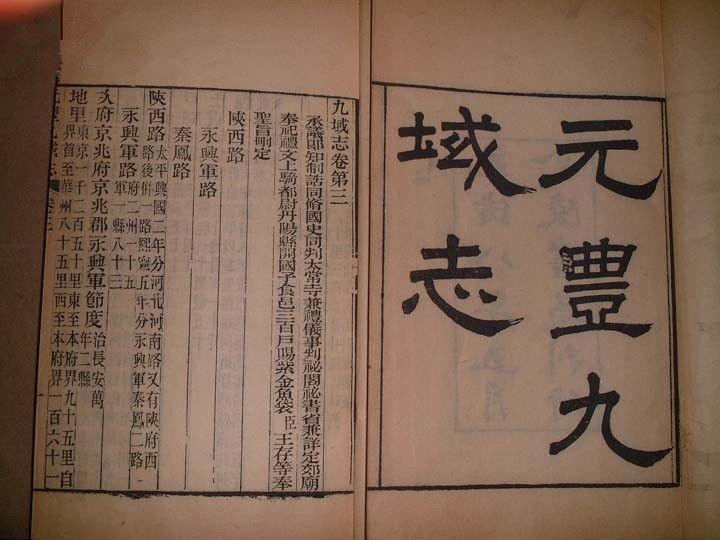 元豐九
域志
九域志卷第三
承議郎知制誥同脩國史同判太常寺兼禮儀事判祕閣祕書省兼詳定郊廟
奉祀禮文上騎都尉丹陽縣開國子食邑三百戶賜紫金魚袋臣王存等奉
聖旨刪定
陝西路
永興軍路
秦鳳路
陝西路太平興國二年分河北河南路又有陝府西
路後併一路熙寧五年分永興軍秦鳳二路
永興軍路府二州一十五
軍一縣八十三
次府京兆府京兆郡永興軍節度治長安萬
年二縣
地里東京一千二百五十里東至本府界九十五里自
界首至華州八十五里西至本府界一百六十一